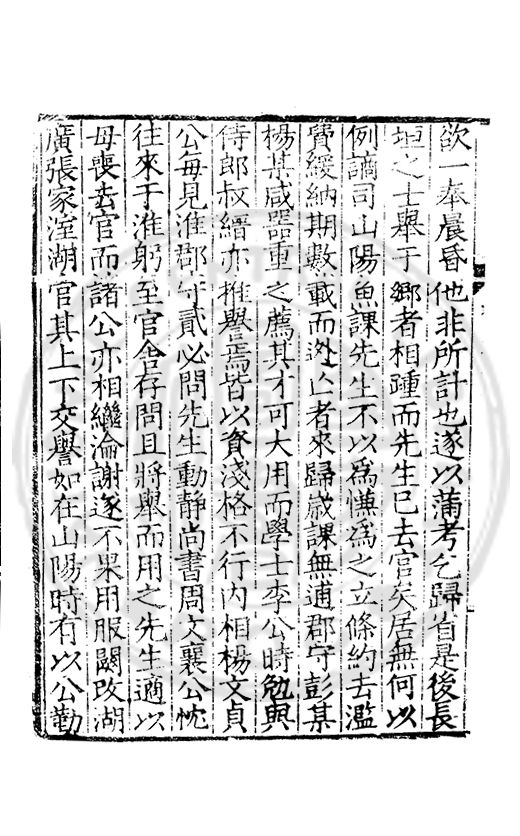 欲一奉晨昏他非所計也遂以蒲考乞歸省是後長
垣之士舉于鄉者相踵而先生已去官矣居無何以
例謫司山陽魚課先生不以為懆為之立條約去濫
費緩納期數載而逃亡者來歸歲課無逋郡守彭某
楊某咸器重之薦其才可大用而學士李公時勉與
侍郎叔縉亦推譽焉皆以資淺格不行内相楊文貞
公每見淮郡守貳必問先生動靜尚書周文襄公忱
往來于淮躬至官舍存問且將舉而用之先生適以
母喪去官而諸公亦相繼淪謝遂不果用服闋改湖
廣張家湖官其上下交譽如在山陽時有以公勤